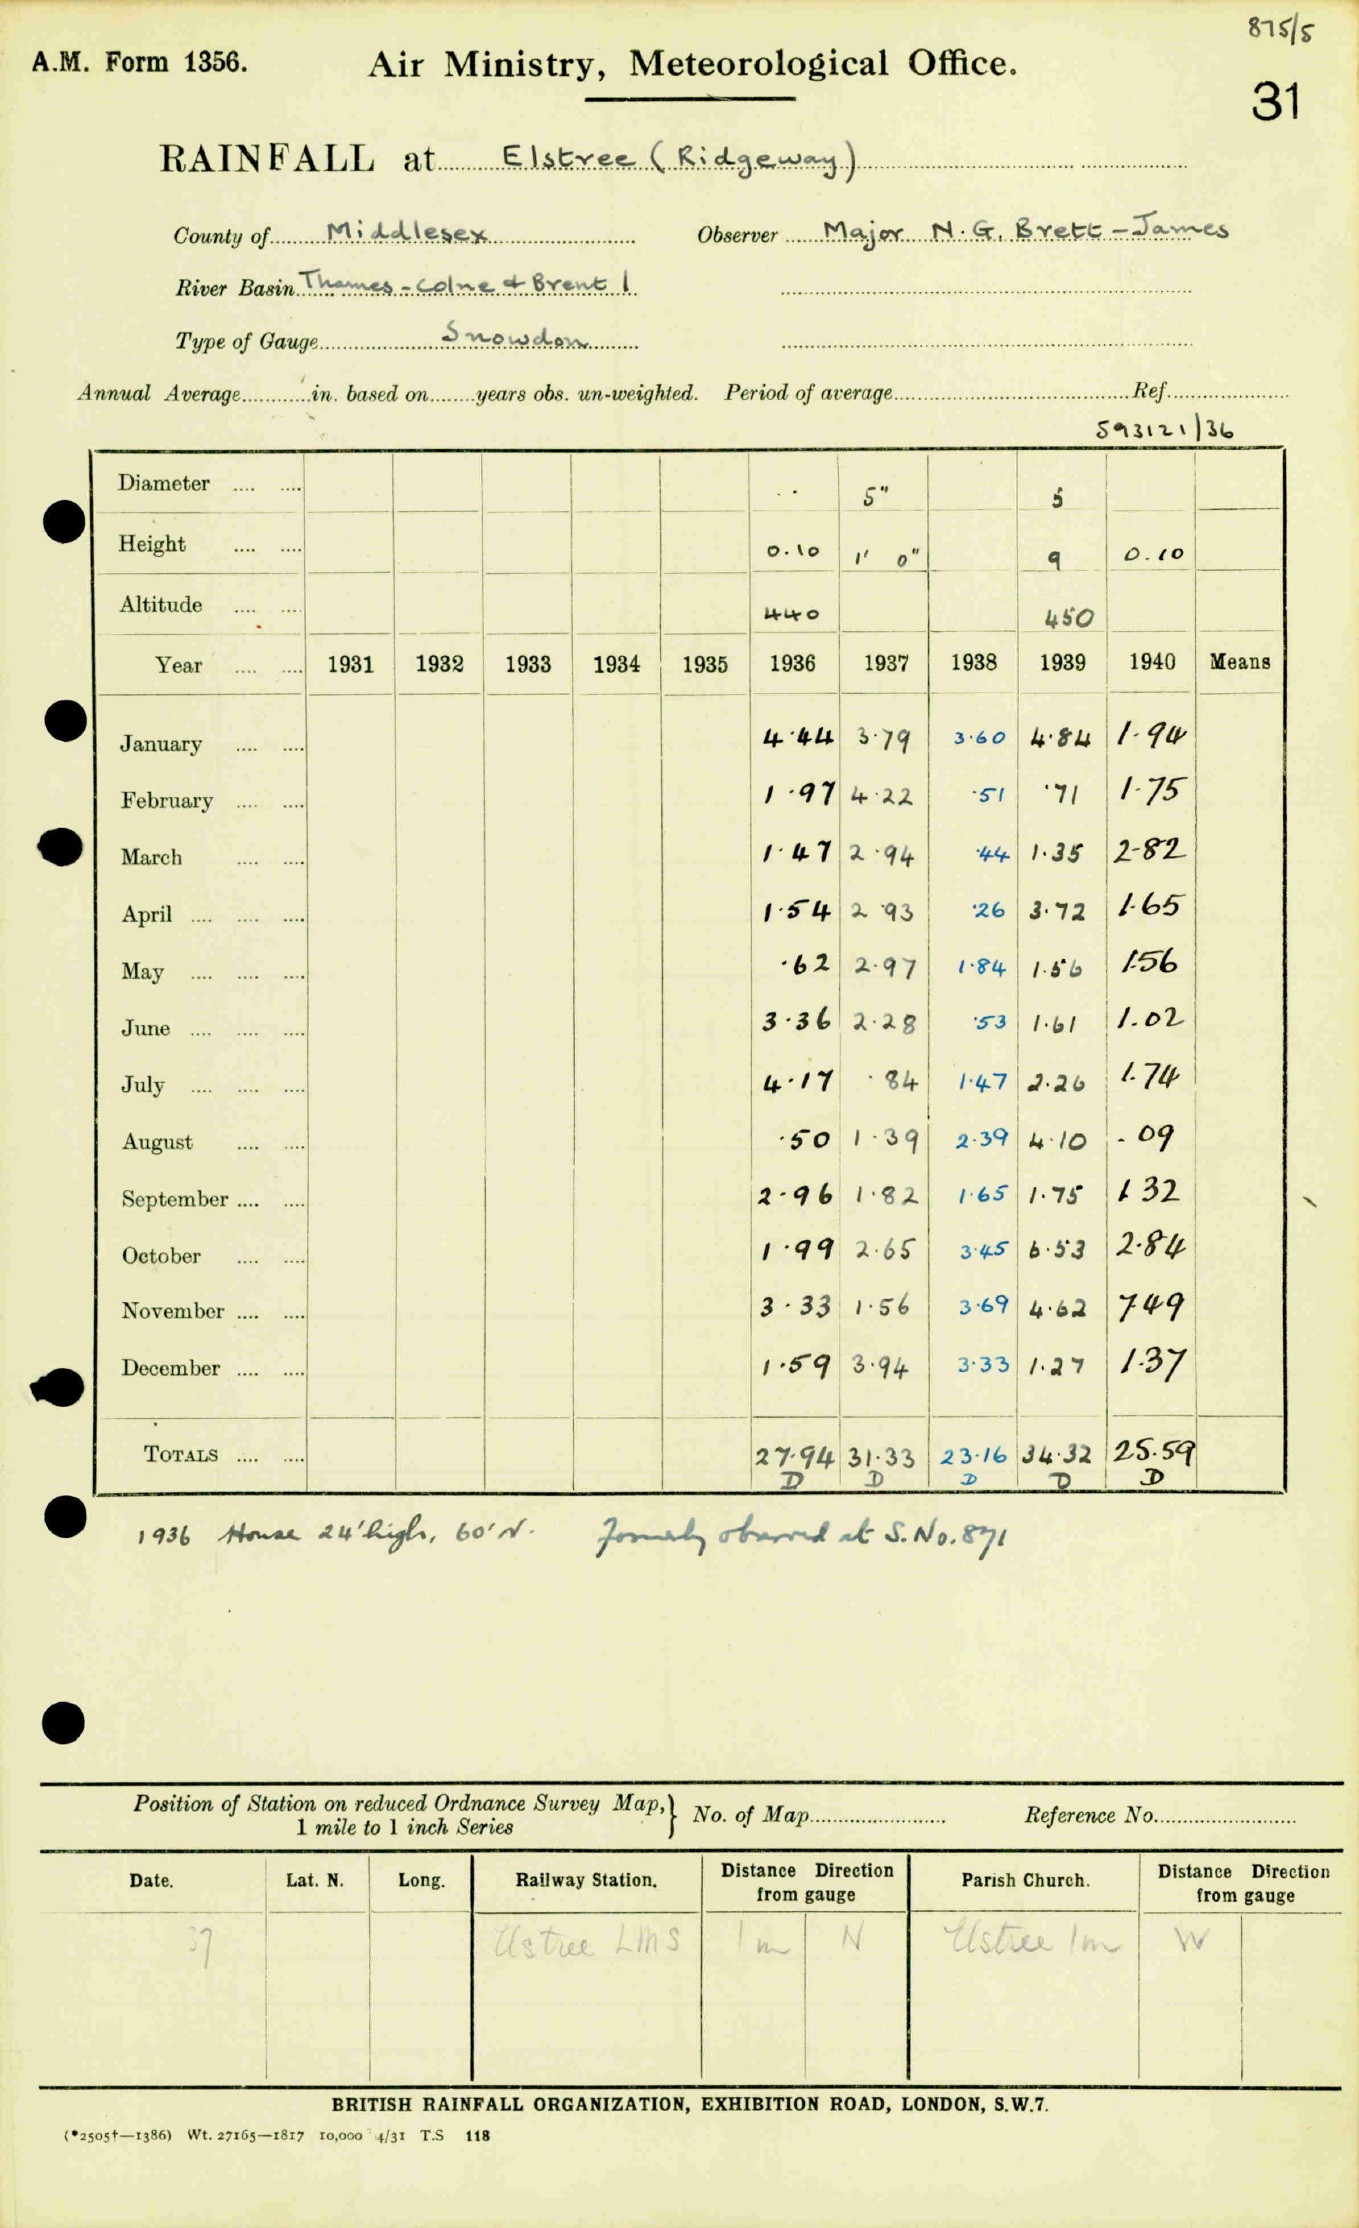 875/5
A.M. Form 1356. Air Ministry, Meteorological Office.
31
RAINFALL at Elstree (Ridgeway)
County of Middlesex Observer Major N. G. Brett-James
River Basin Thames - Colne & Brent 1
Type of Gauge Snowdon
Annual Average in. based on years obs. un-weighted. Period of average Ref.
593121/36
Diameter 5" 5
Height 0.10 1' 0" 9 0.10
Altitude 440 450
Year 1931 1932 1933 1934 1935 1936 1937 1938 1939 1940 Means
January 4.44 3.79 3.60 4.84 1.94
February 1.97 4.22 .51 .71 1.75
March 1.47 2.94 .44 1.35 2.82
April 1.54 2.93 .26 3.72 1.65
May .62 2.97 1.84 1.56 1.56
June 3.36 2.28 .53 1.61 1.02
July 4.17 .84 1.47 2.26 1.74
August .50 1.39 2.39 4.10 .09
September 2.96 1.82 1.65 1.75 1 32
October 1.99 2.65 3.45 6.53 2.84
November 3.33 1.56 3.69 4.62 7.49
December 1.59 3.94 3.33 1.27 1.37
TOTALS 27.94 31.33 23.16 34.32 25.59
D D D D D
1936 House 24' high, 60' N. Formerly observed at S.No. 871
Position of Station on reduced Ordnance Survey Map, } No. of Map Reference No.
1 mile to 1 inch Series
Date. Lat. N. Long. Railway Station. Distance Direction from gauge Parish Church. Distance Direction from gauge
37 Elstree LMS 1 m N Elstree 1m W
BRITISH RAINFALL ORGANIZATION, EXHIBITION ROAD, LONDON, S.W.7.
(*2505†—1386) Wt. 27165—1817 10,000 4/31 T.S 118